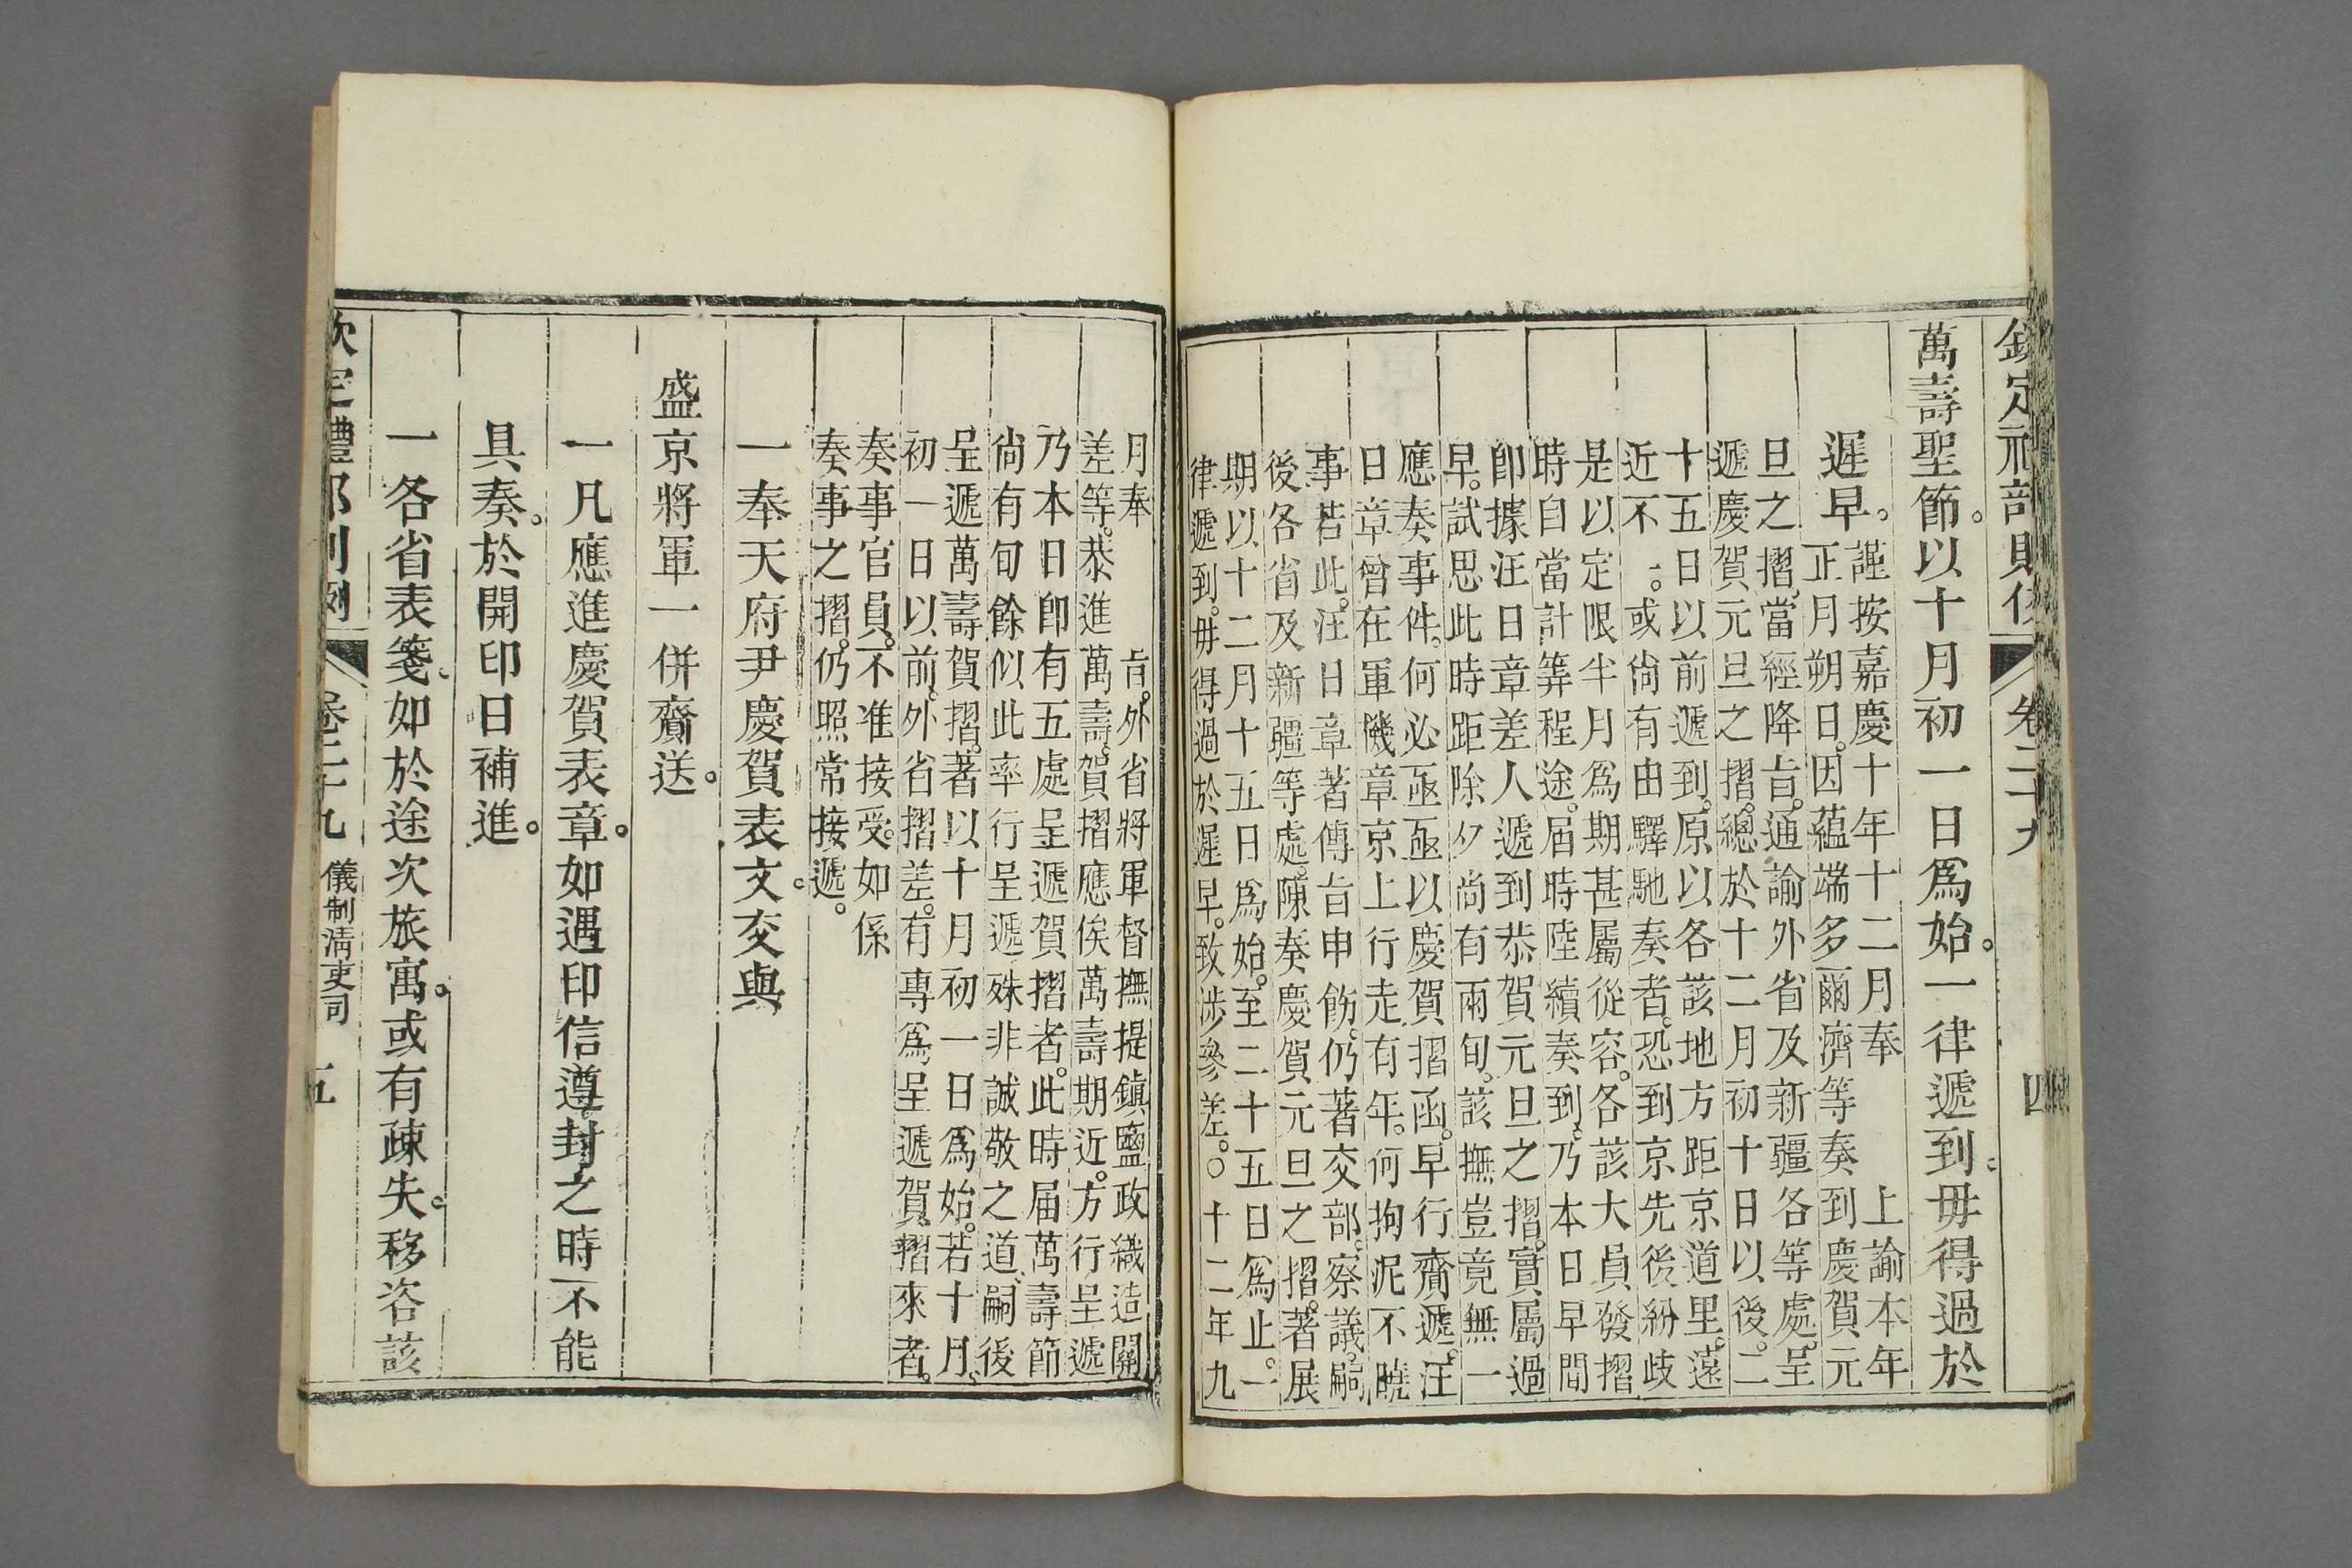 欽定禮部則例 卷二十九 四
萬壽聖節。以十月初一日爲始。一律遞到。毋得過於
遲早。謹按嘉慶十年十二月奉 上諭本年
正月朔日。因蘊端多爾濟等奏到慶賀元
旦之摺。當經降旨。通諭外省及新疆各等處。呈
遞慶賀元旦之摺。總於十二月初十日以後。二
十五日以前遞到。原以各該地方距京道里。遠
近不一。或尙有由驛馳奏者。恐到京先後紛歧
是以定限半月爲期甚屬從容。各該大員發摺
時自當計筭程途。届時陸續奏到。乃本日早間
卽據汪日章差人遞到恭賀元旦之摺。實屬過
早。試思此時距除夕尙有兩旬。該撫豈竟無一
應奏事件。何必亟亟以慶賀摺函。早行齎遞。汪
日章曾在軍機章京上行走有年。何拘泥不曉
事若此。汪日章著傳旨申飭。仍著交部。察議。嗣
後各省及新疆等處。陳奏慶賀元旦之摺。著展
期以十二月十五日爲始。至二十五日爲止。一
律遞到。毋得過於遲早。致涉參差。○十二年九
月奉 旨。外省將軍督撫提鎮鹽政織造關
差等。恭進萬壽。賀摺應俟萬壽期近。方行呈遞
乃本日卽有五處呈遞賀摺者。此時届萬壽節
尙有旬餘似此率行呈遞殊非誠敬之道。嗣後
呈遞萬壽賀摺。著以十月初一日爲始。若十月
初一日以前。外省摺差。有專爲呈遞賀摺來者。
奏事官員。不准接受。如係
奏事之摺。仍照常接遞。
一奉天府尹慶賀表文。交與
盛京將軍一併齎送。
一凡應進慶賀表章。如遇印信遵封之時不能
具奏。於開印日補進。
一各省表箋。如於途次旅寓。或有疎失。移咨該
欽定禮部則例 卷二十九 儀制淸吏司 五